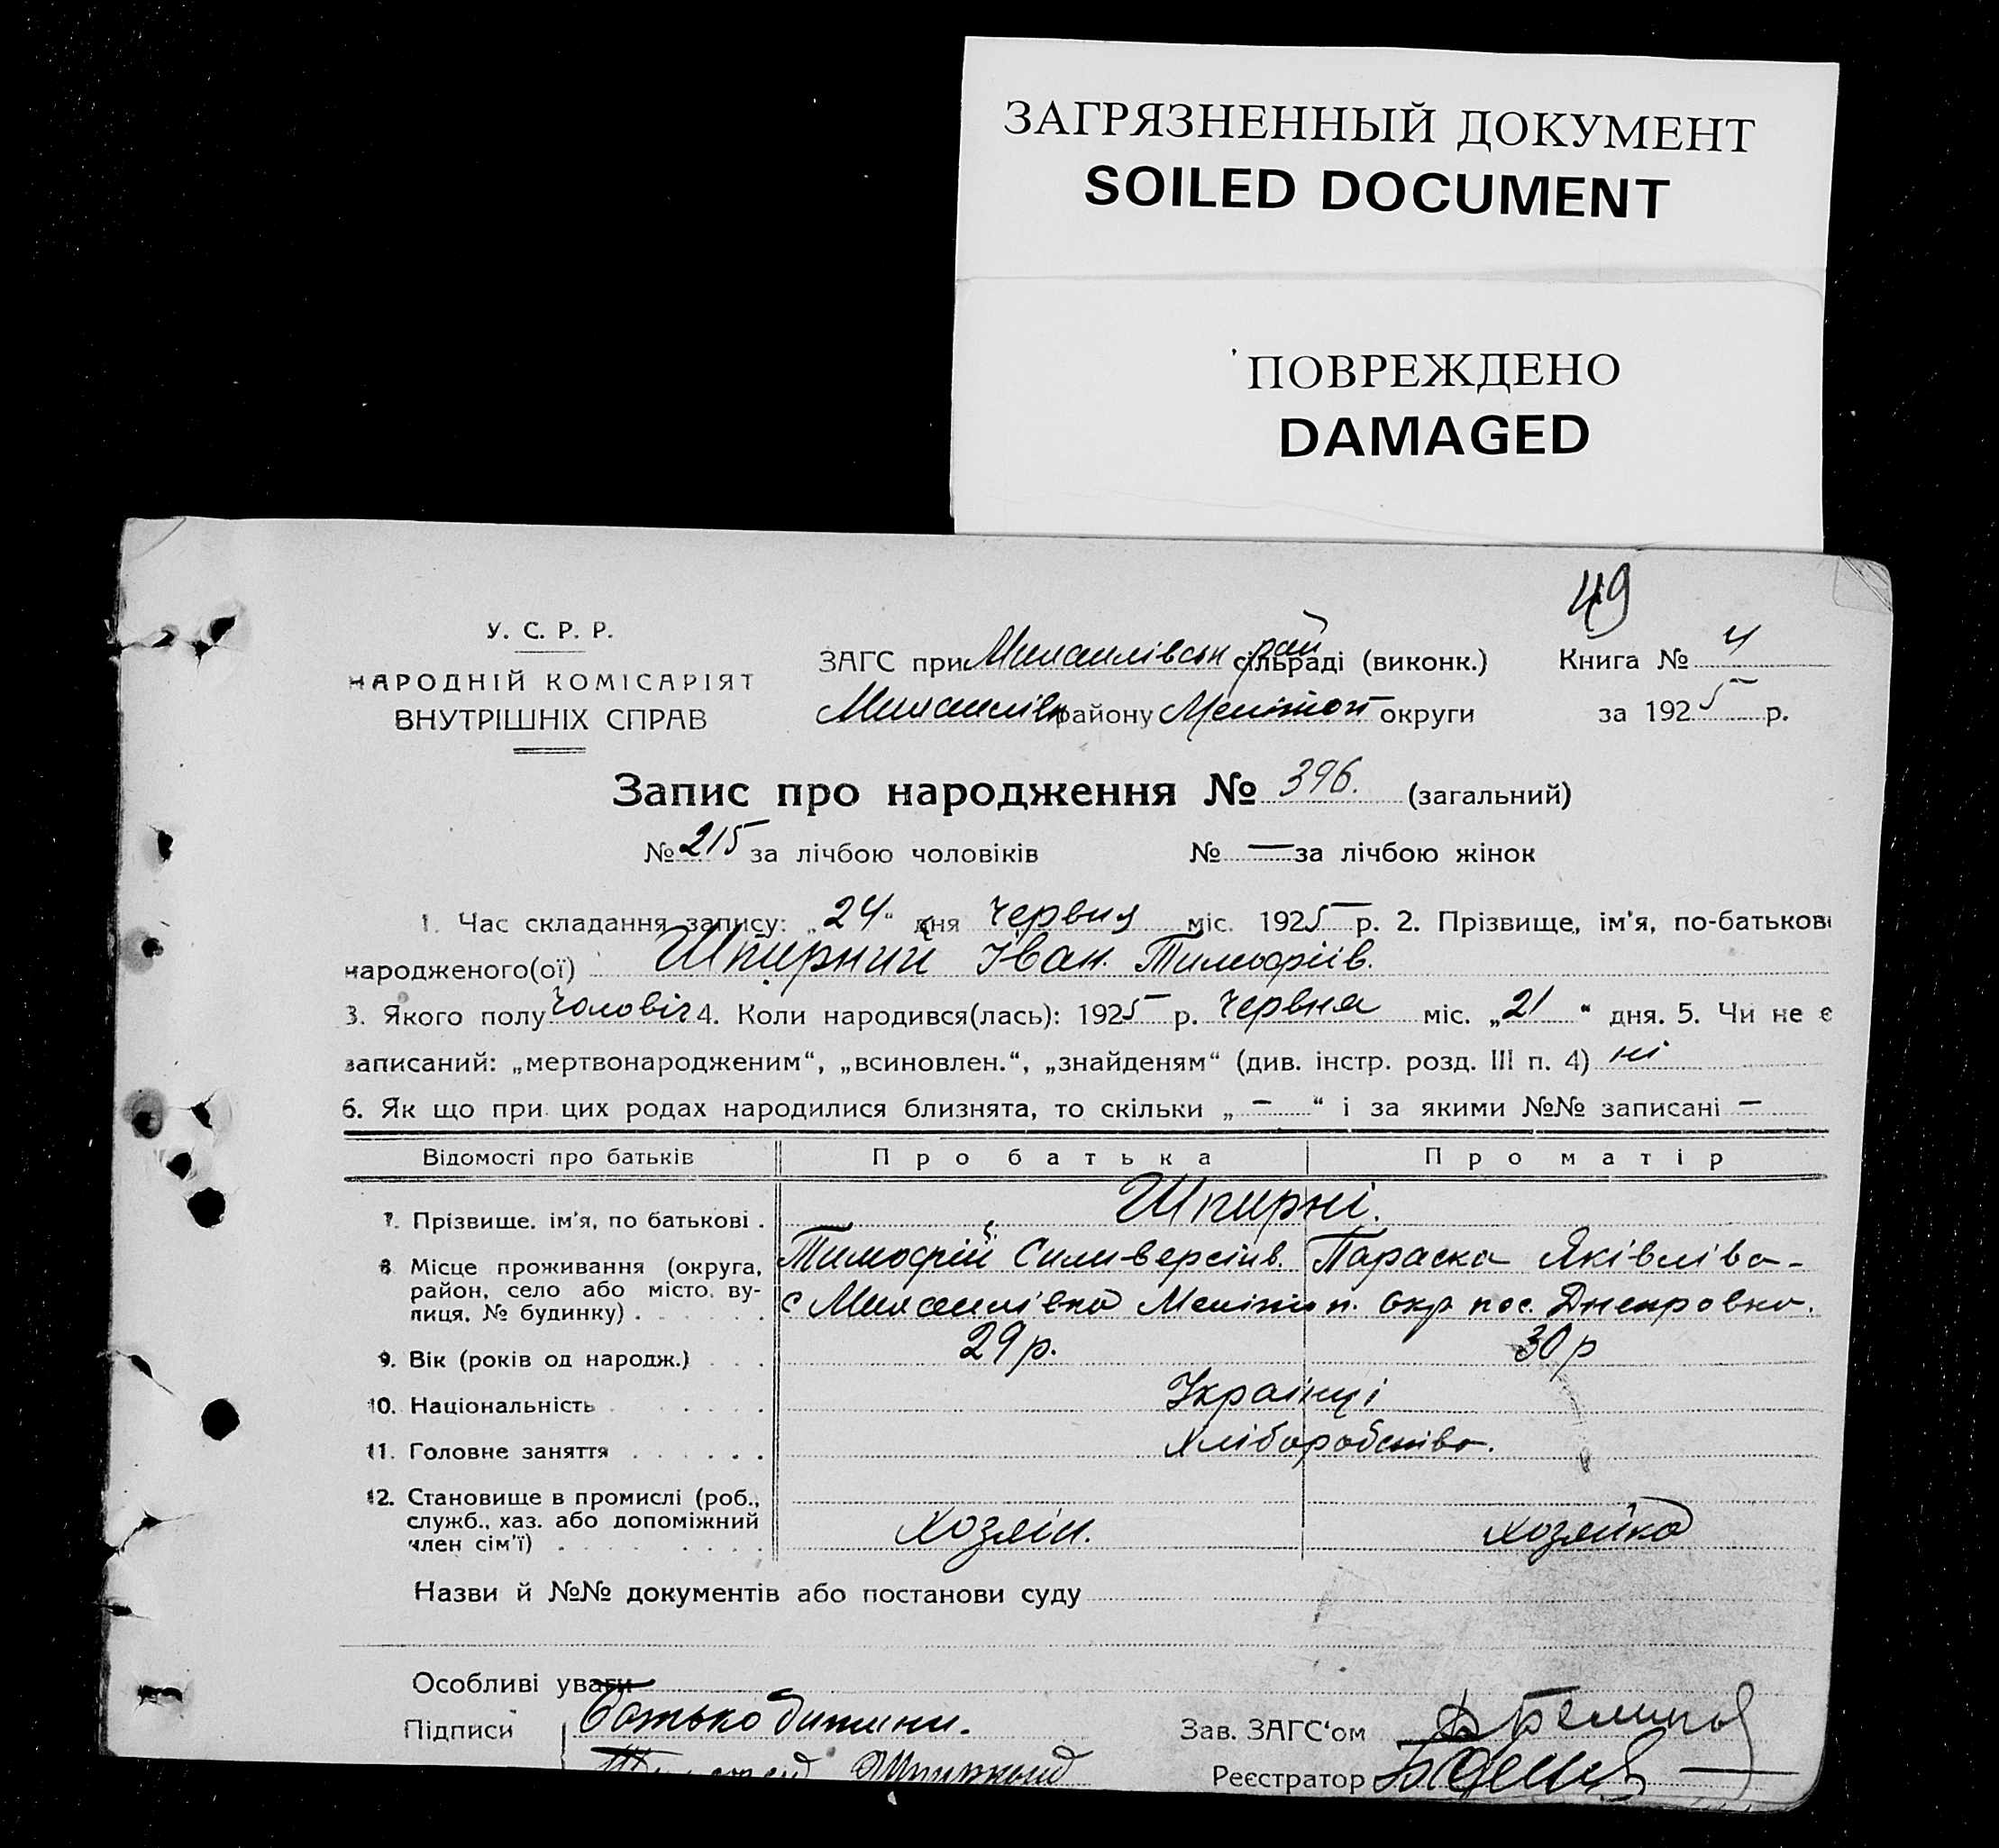 ЗАГРЯЗНЕННЫЙ ДОКУМЕНТ
SOILED DOCUMENT
ПОВРЕЖДЕНО
DAMAGED
49
У. С. Р. Р.
НАРОДНІЙ КОМІСАРІЯТ
ВНУТРІШНІХ СПРАВ
ЗАГС при Михайлівськ рай сільраді (виконк.)
Михайлівк району Мелітоп округи
Книга № 4
за 1925 р.
Запис про народження № 396. (загальний)
№ 215 за лічбою чоловіків № — за лічбою жінок
1. Час складання запису: „24“ дня червня міс. 1925 р. 2. Прізвище, ім'я, по-батькові
народженого(ої) Шпирний Іван Тимофіїв.
3. Якого полу чоловіч 4. Коли народився(лась): 1925 р. червня міс. „21“ дня. 5. Чи не є
записаний: „мертвонародженим“, „всиновлен.“, „знайденям“ (див. інстр. розд. III п. 4) ні
6. Як що при цих родах народилися близнята, то скільки „ — “ і за якими №№ записані —
Відомості про батьків Про батька Про матір
7. Прізвище, ім'я, по батькові . Шпирні.
Тимофій Силиверстів. Параска Яківлівa-
8 Місце проживання (округа, район, село або місто, ву-
лиця, № будинку) . с Михайлівка Мелітоп. Окр. пос. Днепровка.
9. Вік (років од народж.) . . . 29 р. 30 р
10. Національність Українці
11. Головне заняття Хліборобство.
12. Становище в промислі (роб.,
служб., хаз. або допоміжний
член сім'ї) хозяїн. хозяйка
Назви й №№ документів або постанови суду
Особливі уваги
Підписи батько дитини.
Зав. ЗАГС'ом
Реєстратор